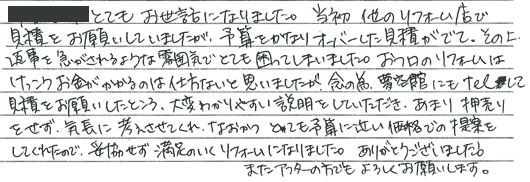 とてもお世話になりました。当初他のリフォーム店で
見積をお願いしていましたが、予算をかなりオーバーした見積がでて。その上
返事を急がされるような雰囲気でとても困ってしまいました。お フロのリフォームは
けっこうお金がかかるのは仕方ないと思いましたが、念の為、 館にもtelして
見積をお願いしたところ、大変わかりやすい説明をしていただき、あまり押売り
をせず、気長に考えさせてくれ、なおかつとても予算に近い価格での提案を
してくれたので、妥協せず満足のいくリフォームになりました。ありがとうございました。
またアフターの方でもよろしくお願いします。